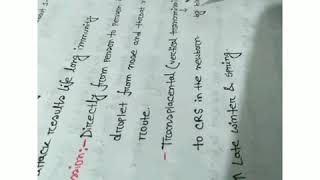 attack results life long immunity
ssion:- Directly from person to person
droplet from nose and throat
route.
- Transplacental (vertical transmission
to CRS in the newborn
n Late winter & spring.